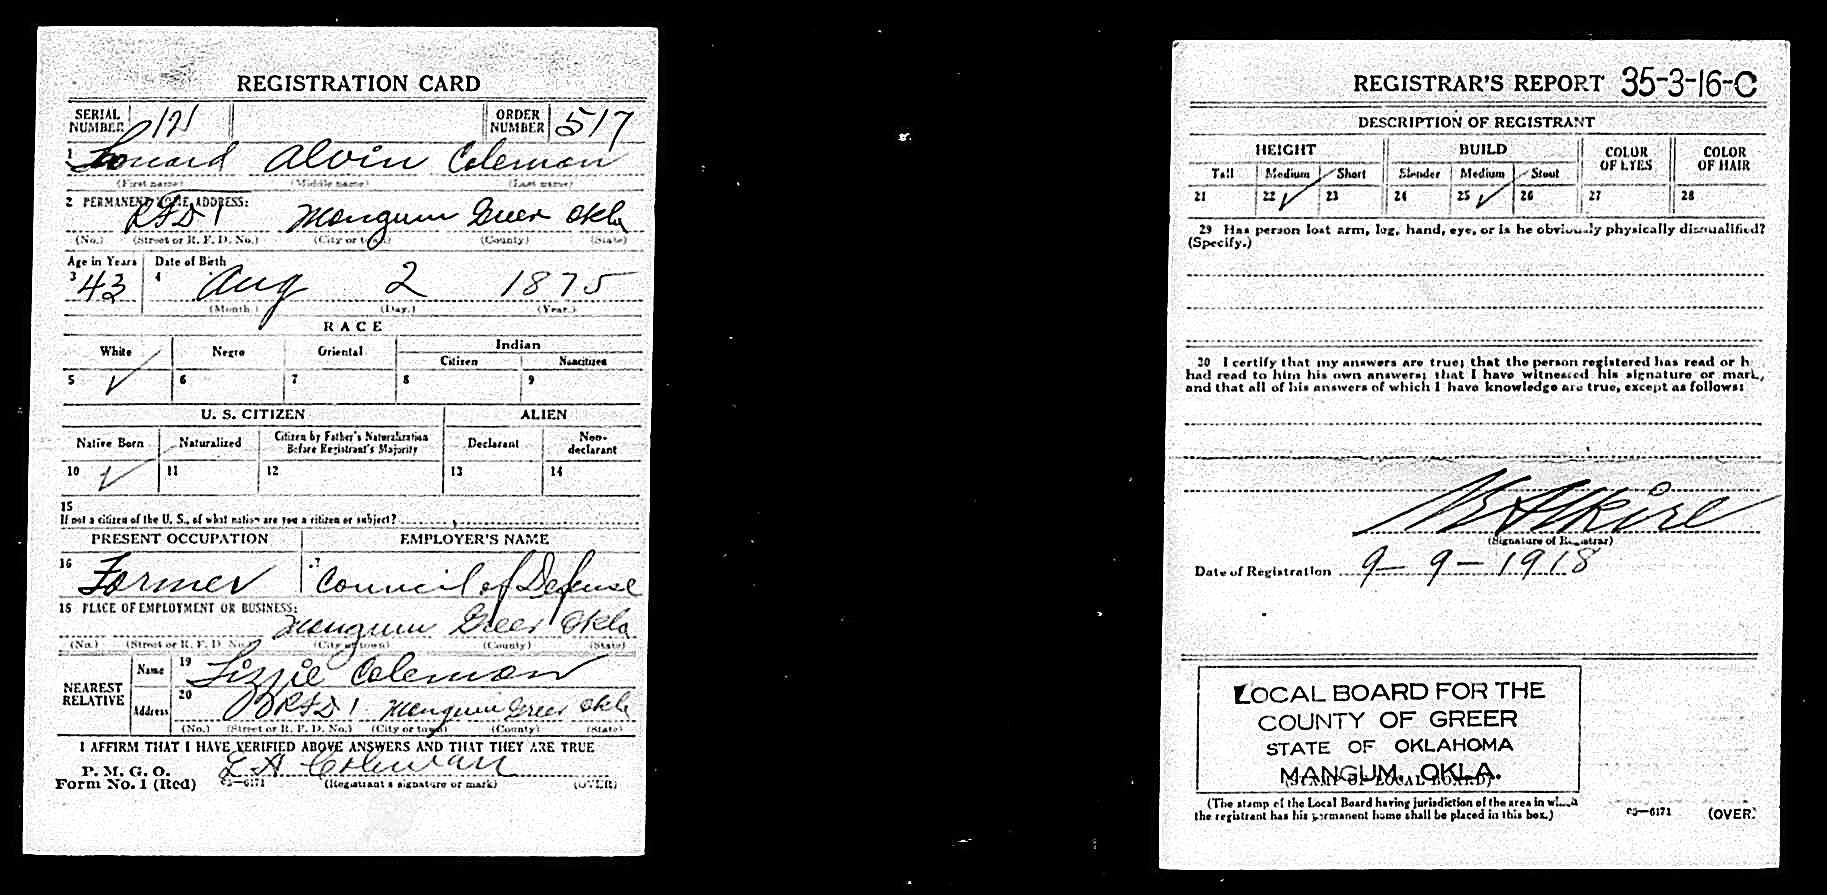 REGISTRATION CARD
SERIAL NUMBER 121 ORDER NUMBER 517
1 Leonard Alvin Coleman
(First name) (Middle name) (Last name)
2 PERMANENT HOME ADDRESS:
RFD 1 Mangum Greer Okla
(No.) (Street or R. F. D. No.) (City or town) (County) (State)
Age in Years Date of Birth
3 43 4 Aug 2 1875
(Month.) (Day.) (Year.)
RACE
White Negro Oriental Indian
Citizen Noncitizen
5 ✓ 6 7 8 9
U. S. CITIZEN ALIEN
Native Born Naturalized Citizen by Father's Naturalization Before Registrant's Majority Declarant Non-declarant
10 ✓ 11 12 13 14
15
If not a citizen of the U. S., of what nation are you a citizen or subject?
PRESENT OCCUPATION EMPLOYER'S NAME
16 Farmer 17 Council of Defense
18 PLACE OF EMPLOYMENT OR BUSINESS:
Mangum Greer Okla
(No.) (Street or R. F. D. No.) (City or town) (County) (State)
NEAREST RELATIVE
Name 19 Lizzie Coleman
Address 20 RFD 1 Mangum Greer Okla
(No.) (Street or R. F. D. No.) (City or town) (County) (State)
I AFFIRM THAT I HAVE VERIFIED ABOVE ANSWERS AND THAT THEY ARE TRUE
P. M. G. O.
Form No. 1 (Red) L A Coleman
03—6171 (Registrant's signature or mark) (OVER)
REGISTRAR'S REPORT 35-3-16-C
DESCRIPTION OF REGISTRANT
HEIGHT BUILD COLOR OF EYES COLOR OF HAIR
Tall Medium Short Slender Medium Stout
21 22 ✓ 23 24 25 ✓ 26 27 28
29 Has person lost arm, leg, hand, eye, or is he obviously physically disqualified?
(Specify.)
30 I certify that my answers are true; that the person registered has read or h
had read to him his own answers; that I have witnessed his signature or mark,
and that all of his answers of which I have knowledge are true, except as follows:
(Signature of Registrar)
Date of Registration 9-9-1918
LOCAL BOARD FOR THE
COUNTY OF GREER
STATE OF OKLAHOMA
MANGUM, OKLA.
(STAMP OF LOCAL BOARD)
(The stamp of the Local Board having jurisdiction of the area in which
the registrant has his permanent home shall be placed in this box.)
03—6171 (OVER)